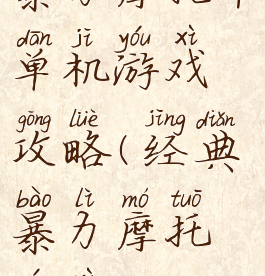 dān jī yóu xì
单机游戏
gōng lüè jīng diǎn
攻略(经典
bào lì mó tuō
暴力摩托